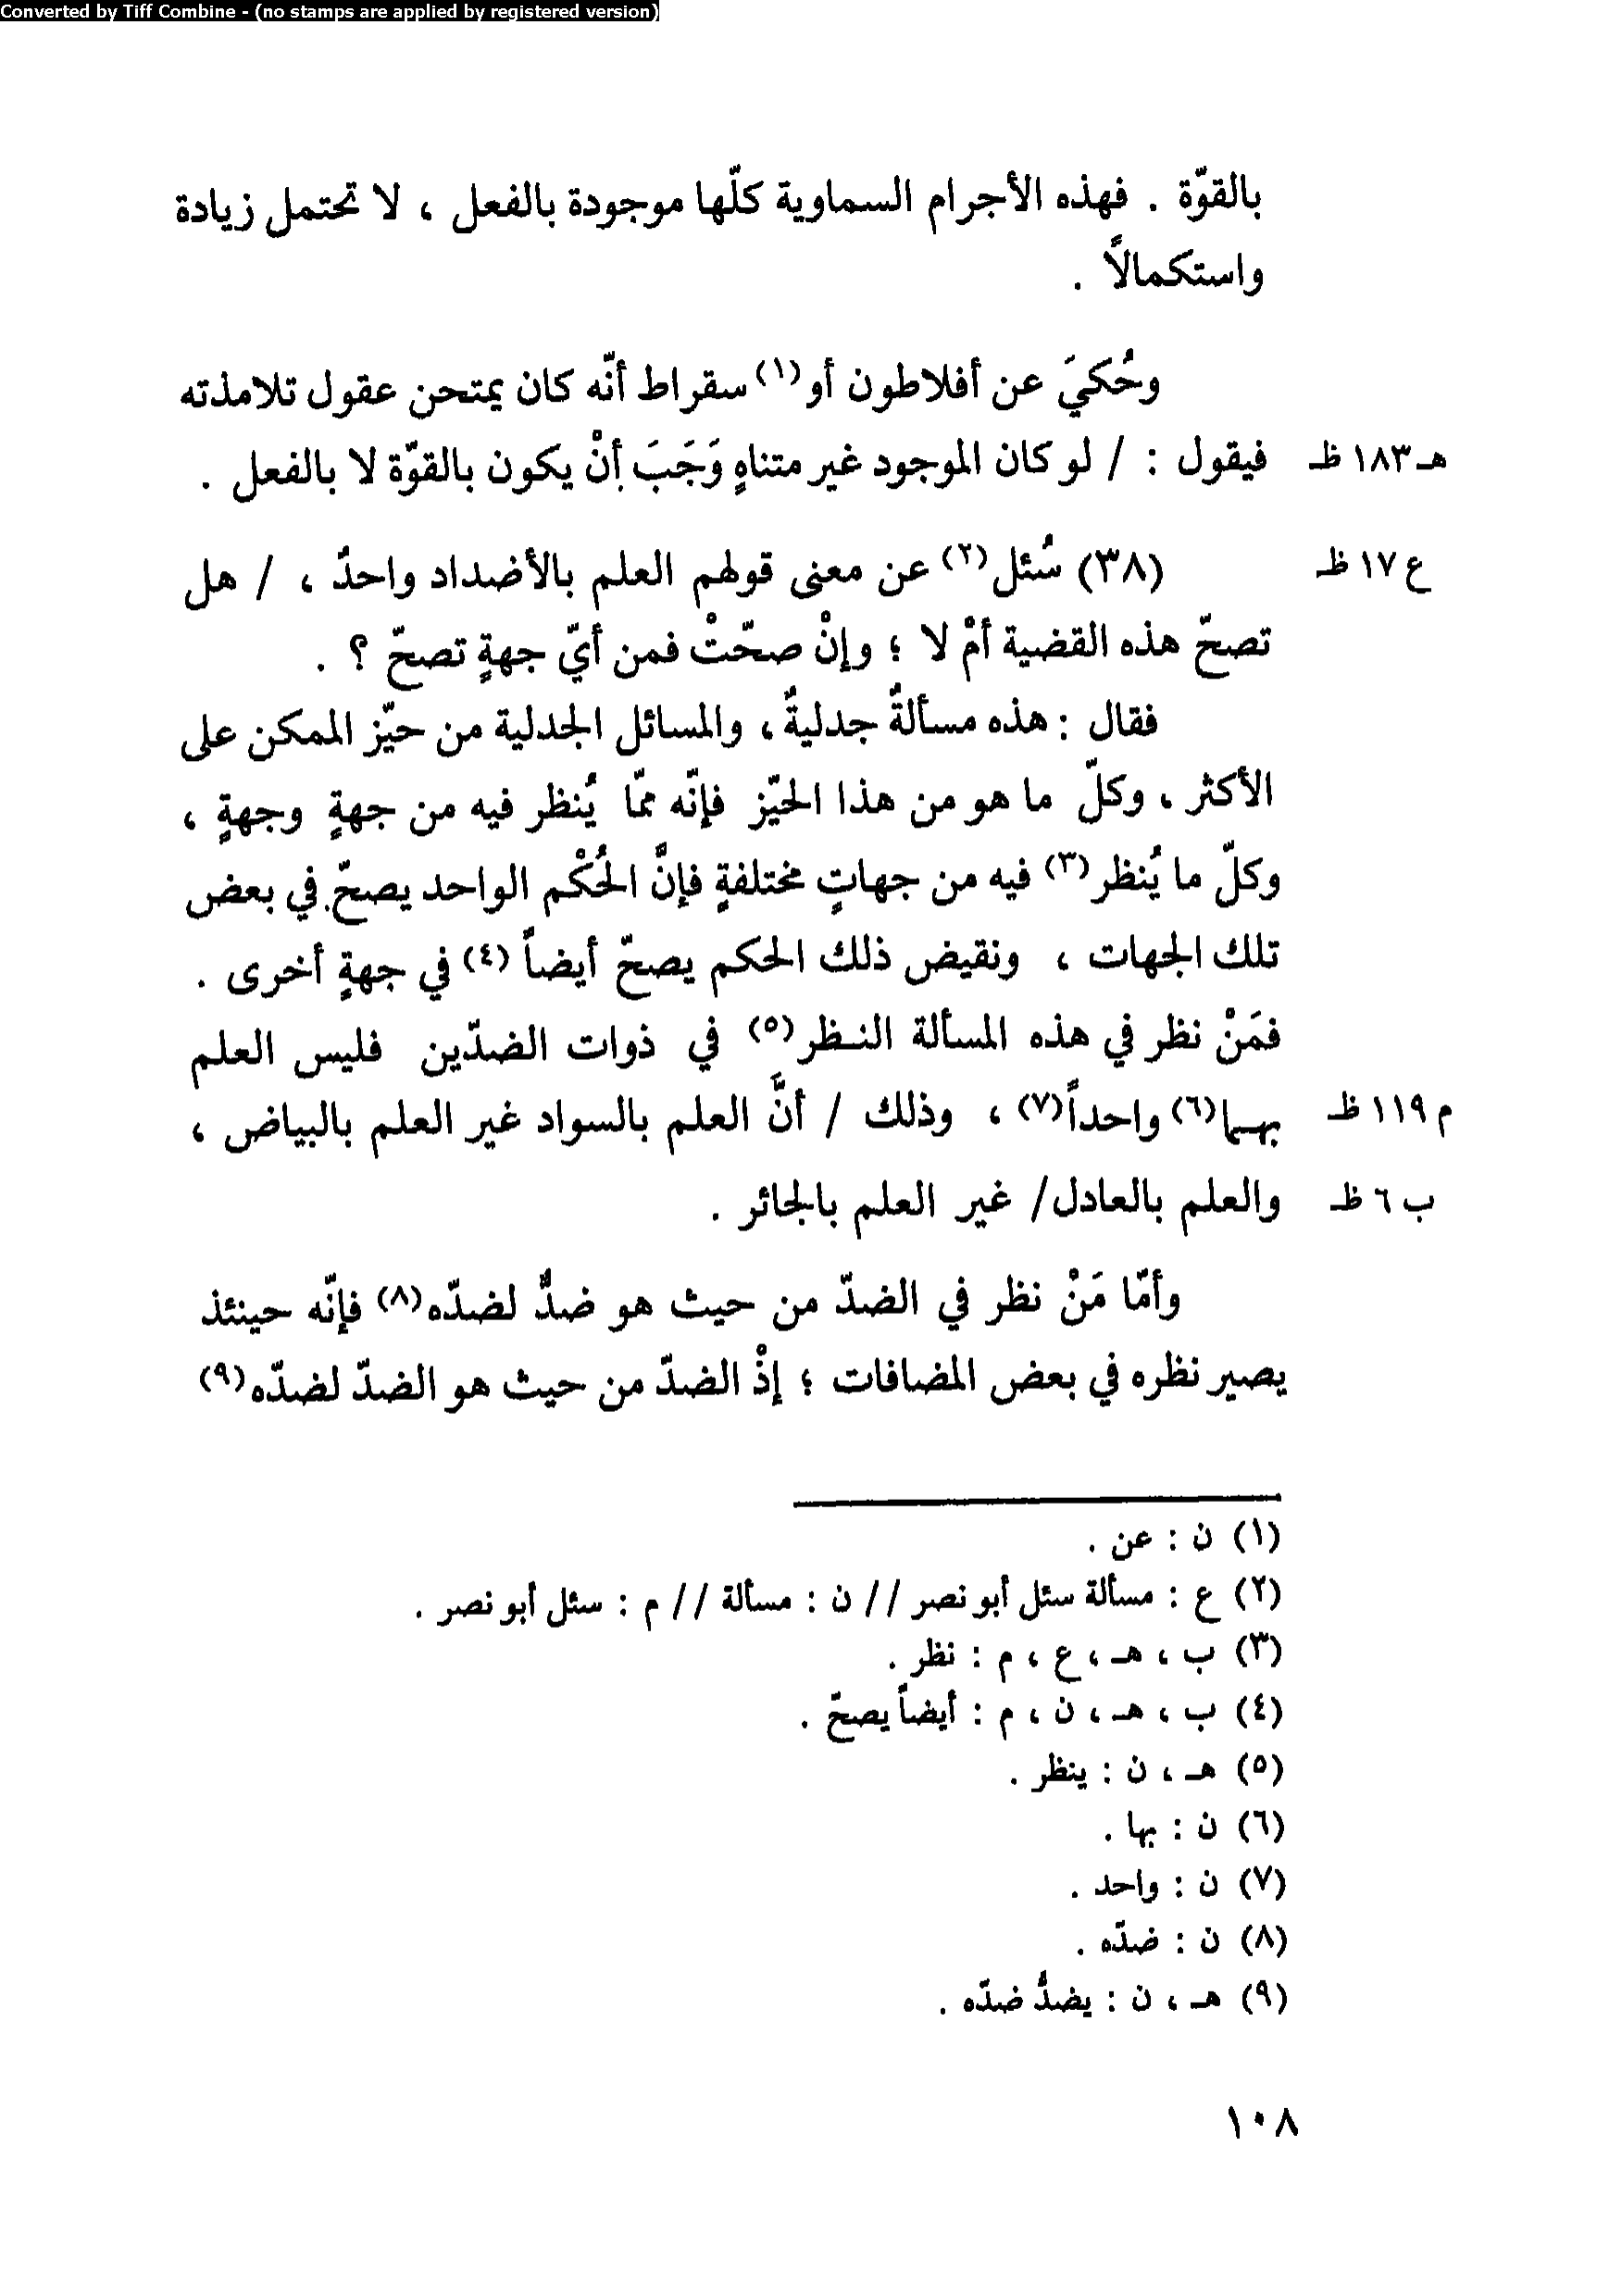 Converted by Tiff Combine - (no stamps are applied by registered version)
بالقوّة . فهذه الأجرام السماوية كلّها موجودة بالفعل ، لا تحتمل زيادة
واستكمالاً .
وحُكيَ عن أفلاطون أو(١) سقراط أنّه كان يمتحن عقول تلامذته
هـ ١٨٣ ظ فيقول : / لو كان الموجود غير متناهٍ وَجَبَ أنْ يكون بالقوّة لا بالفعل .
ع ١٧ ظ (٣٨) سُئل(٢) عن معنى قولهم العلم بالأضداد واحدٌ ، / هل
تصحّ هذه القضية أمْ لا ؛ وإنْ صحّتْ فمن أيّ جهةٍ تصحّ ؟ .
فقال : هذه مسألةٌ جدليةٌ ، والمسائل الجدلية من حيّز الممكن على
الأكثر ، وكلّ ما هو من هذا الحيّز فإنّه ممّا يُنظر فيه من جهةٍ وجهةٍ ،
وكلّ ما يُنظر(٣) فيه من جهاتٍ مختلفةٍ فإنَّ الحُكْم الواحد يصحّ في بعض
تلك الجهات ، ونقيض ذلك الحكم يصحّ أيضاً (٤) في جهةٍ أخرى .
فمَنْ نظر في هذه المسألة النظر(٥) في ذوات الضدّين فليس العلم
م ١١٩ ظ بهما(٦) واحداً(٧) ، وذلك / أنَّ العلم بالسواد غير العلم بالبياض ،
ب ٦ ظ والعلم بالعادل / غير العلم بالجائر .
وأمّا مَنْ نظر في الضدّ من حيث هو ضدٌّ لضدّه(٨) فإنّه حينئذ
يصير نظره في بعض المضافات ؛ إذْ الضدّ من حيث هو الضدّ لضدّه(٩)
(١) ن : عن .
(٢) ع : مسألة سئل أبو نصر // ن : مسألة // م : سئل أبو نصر .
(٣) ب ، هـ ، ع ، م : نظر .
(٤) ب ، هـ ، ن ، م : أيضاً يصحّ .
(٥) هـ ، ن : ينظر .
(٦) ن : بها .
(٧) ن : واحد .
(٨) ن : ضدّه .
(٩) هـ ، ن : يضدُّ ضدّه .
١٠٨